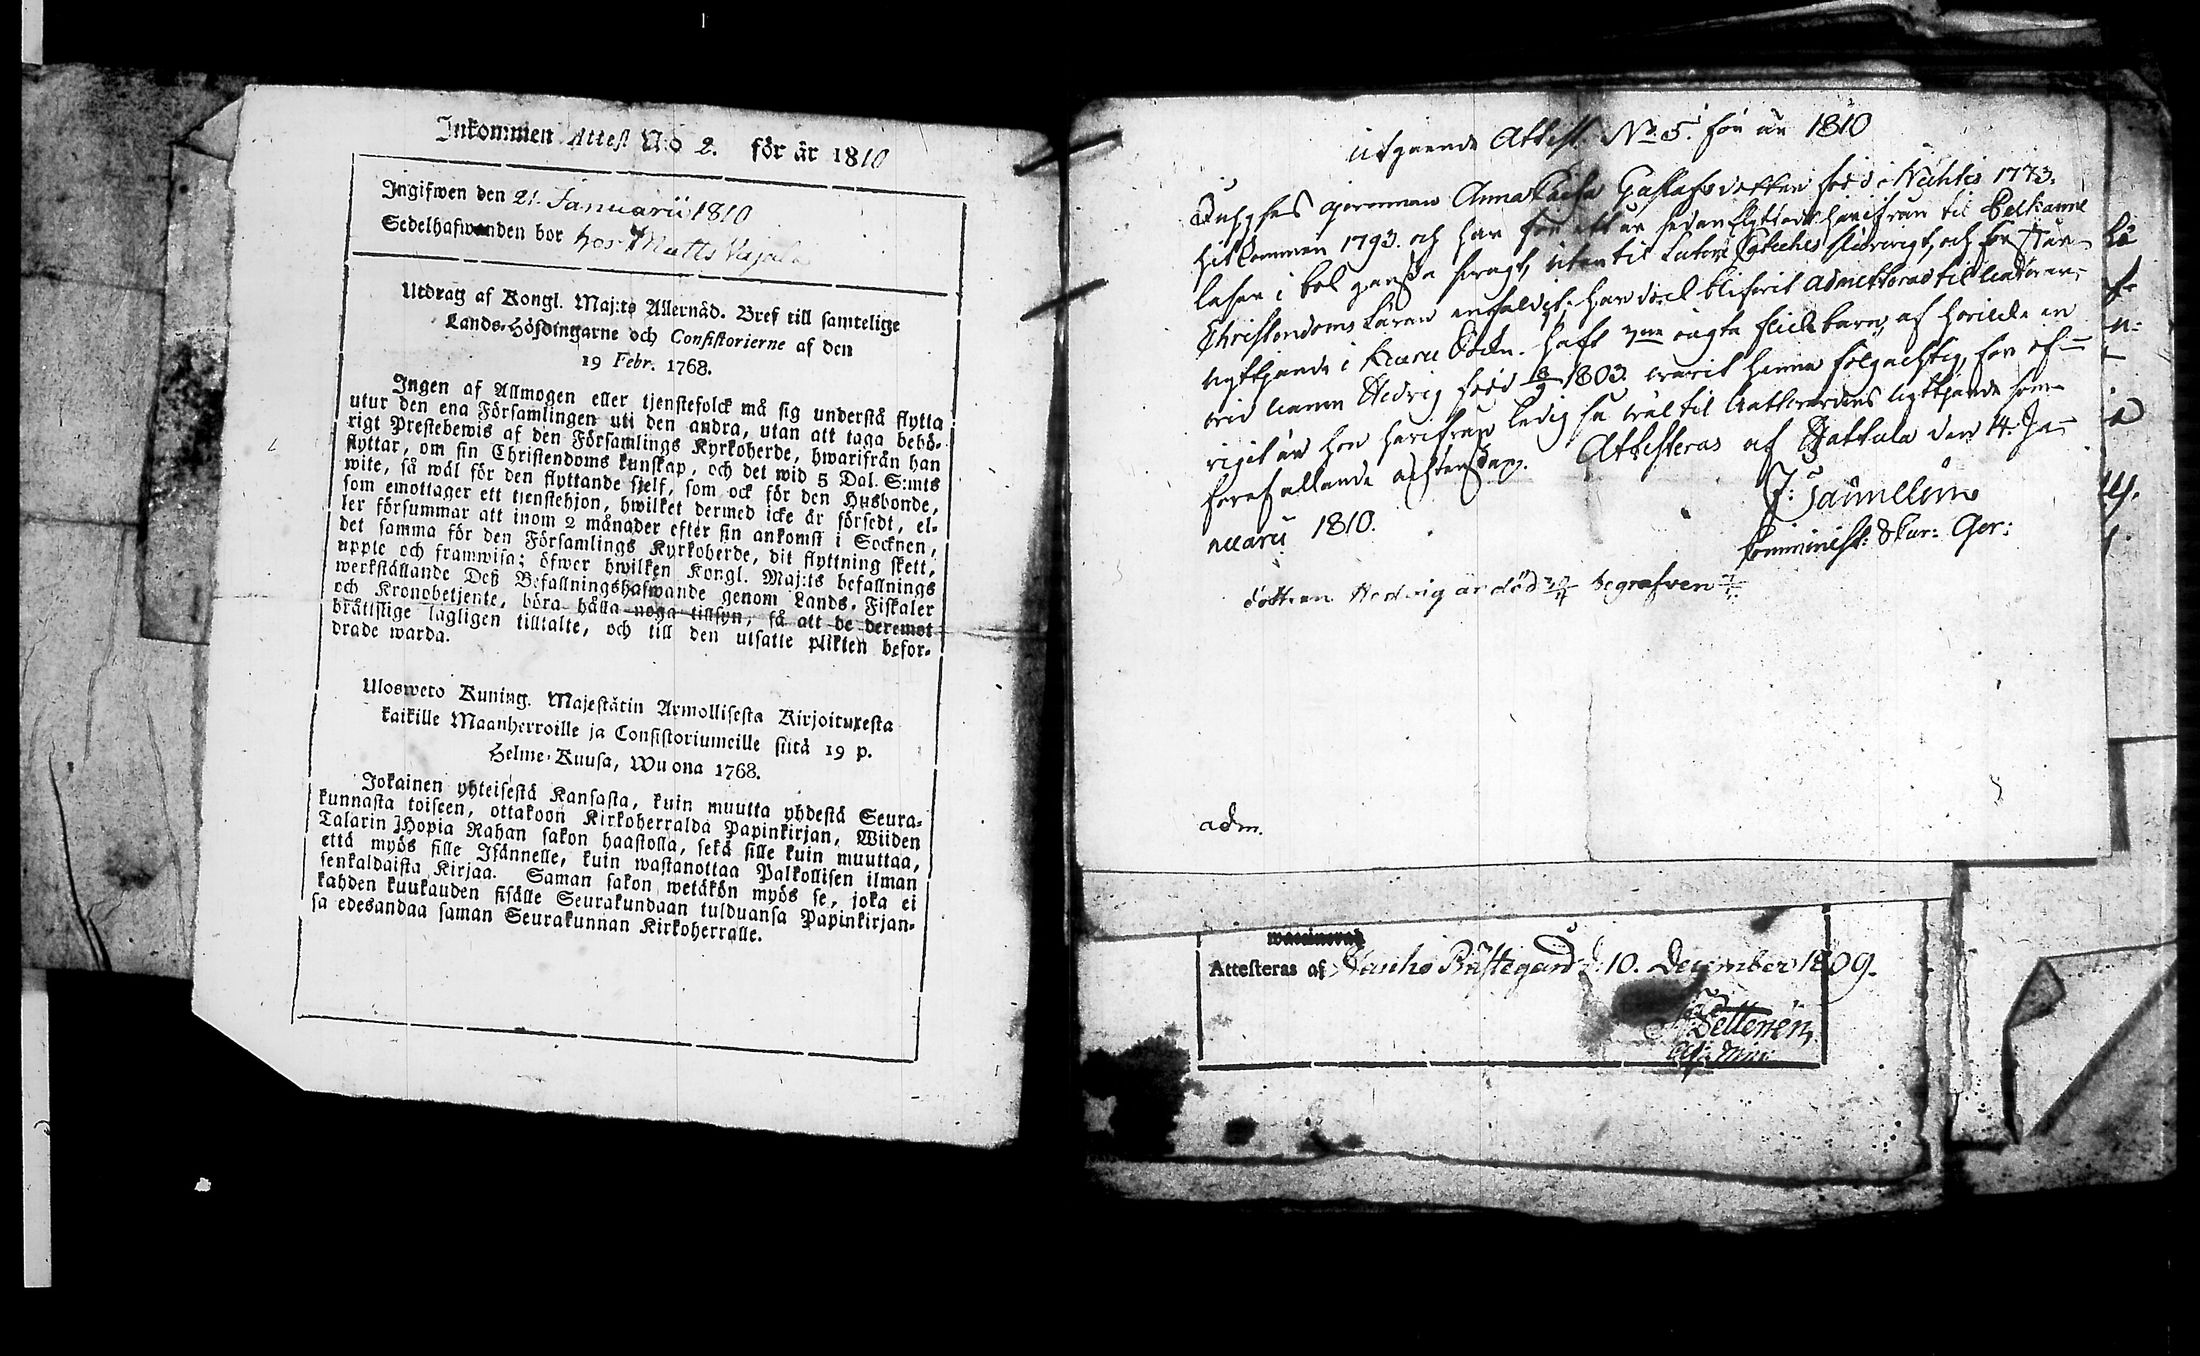 Inkommen Attest No 2. för år 1810
Ingifwen den 21. Januarii 1810
Sedelhafwanden bor hos Matts
Utdrag af Kongl. Maj:ts Allernåd. Bref till samtelige
Lands-Höfdingarne och Consistorierne af den
19 Febr. 1768.
Ingen af Allmogen eller tjenstefolck må sig understå flytta
utur den ena Församlingen uti den andra, utan att taga behö-
rigt Prestebewis af den Församlings Kyrkoherde, hwarifrån han
flyttar, om sin Christendoms kunskap, och det wid 5 Dal. S:mts
wite, så wäl för den flyttande sjelf, som ock för den Husbonde,
som emottager ett tjenstehjon, hwilket dermed icke är försedt, el-
ler försummar att inom 2 månader efter sin ankomst i Socknen,
det samma för den Församlings Kyrkoherde, dit flyttning skett,
upple och framwisa; öfwer hwilken Kongl. Maj:ts befallnings
werkställande Deß Befallningshafwande genom Lands-Fiskaler
och Kronobetjente, böra hålla noga tillsyn, så att de deremot
bråttslige lagligen tilltalte, och till den utsatte plikten befor-
drade warda.
Uloswето Kuning. Majestätin Armollisesta Kirjoituxesta
kaikille Maanherroille ja Consistoriumeille siitä 19 p.
Helme-Kuusa, Wuona 1768.
Jokainen yhteisestä Kansasta, kuin muutta yhdestä Seura-
kunnasta toiseen, ottakoon Kirkoherralda Papinkirjan, Wiiden
Talarin Hopia Rahan sakon haastolla, sekä sille kuin muuttaa,
että myös sille Isännelle, kuin wastanottaa Palkollisen ilman
senkaldaista Kirjaa. Saman sakon wetäkön myös se, joka ei
kahden kuukauden sisälle Seurakundaan tulduansa Papinkirjan-
sa edesandaa saman Seurakunnan Kirkoherralle.
utgående Attest. No 5. för år 1810
Anna Caisa Gustafsdotter född i 1773.
hitkommen 1793. och har för ett år sedan flyttat härifrån til
läser i bok ganska svagt, utantil Luteri Cateches och förstår
Christendoms Läran enfaldigt, har väl blifvit admitterad til Nattvar-
begående i Haft oägta flickebarn, af hvilka en
vid namn Hedvig född 1803. varit henne följaktig, för öf-
rigit är hon härifrån ledig så väl til Nattvardens begående som
förefallande äktenskap. Attesteras af Hattula den 14. Ja-
nuarii 1810.
J:
Comminist:
dottren Hedvig är död begrafven
adm.
Attesteras af Hauho Prästegård d. 10. December 1809.